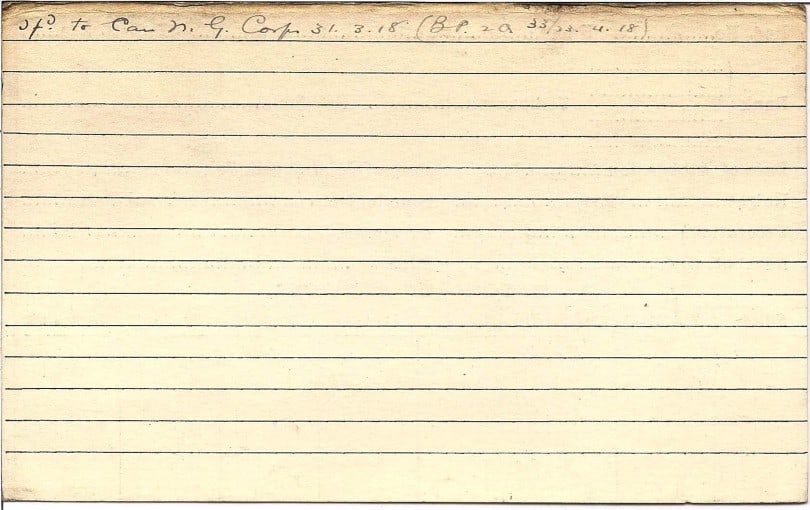 Tfd to Can M. G. Corps 31. 3. 18 (B P. 2 a 33/23. 4. 18)